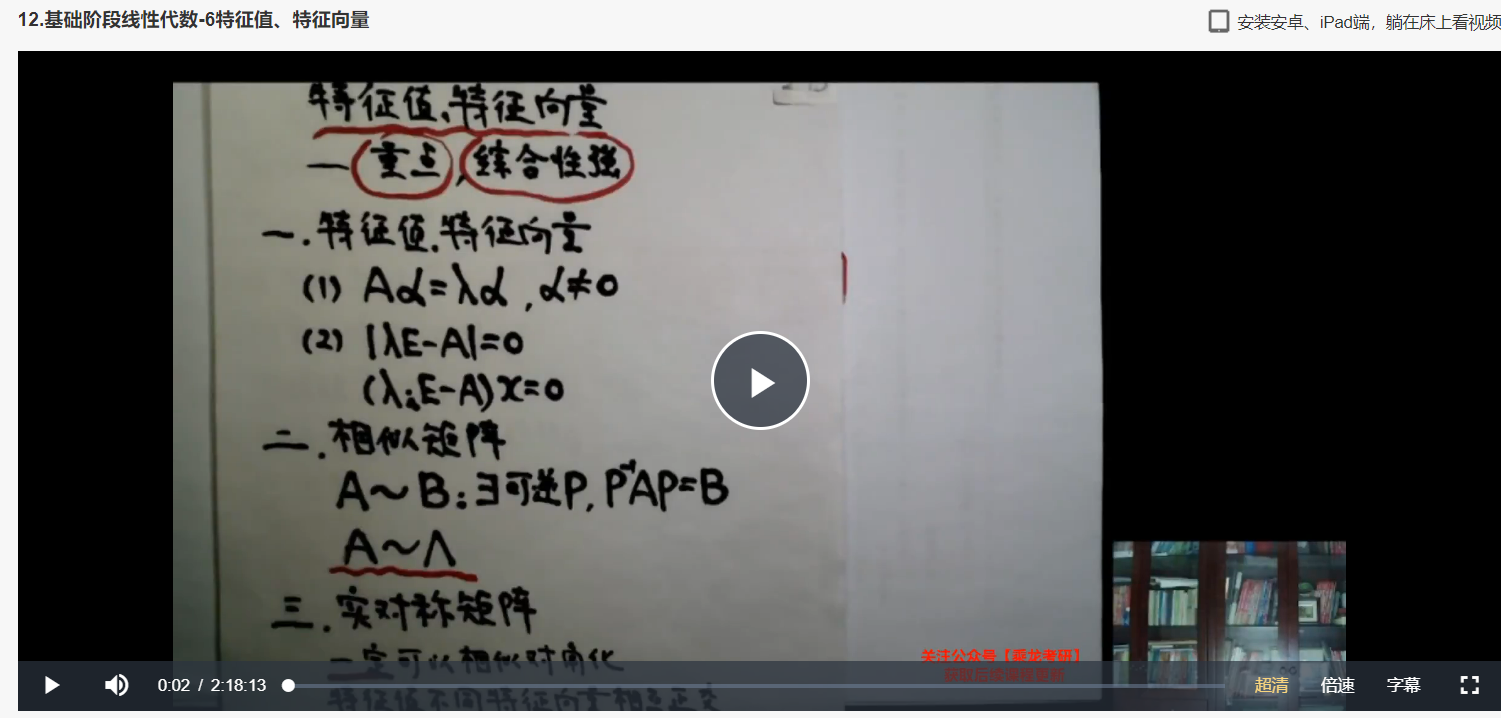 12.基础阶段线性代数-6特征值、特征向量
安装安卓、iPad端，躺在床上看视频
特征值、特征向量
— 重点, 综合性强
一. 特征值.特征向量
(1) Aα=λα , α≠0
(2) |λE-A|=0
(λᵢE-A)x=0
二. 相似矩阵
A~B:∃可逆P, P⁻¹AP=B
A~Λ
三. 实对称矩阵
一定可以相似对角化
特征值不同特征向量相互正交
关注公众号【乘龙考研】
获取后续课程更新
0:02 / 2:18:13
超清
倍速
字幕